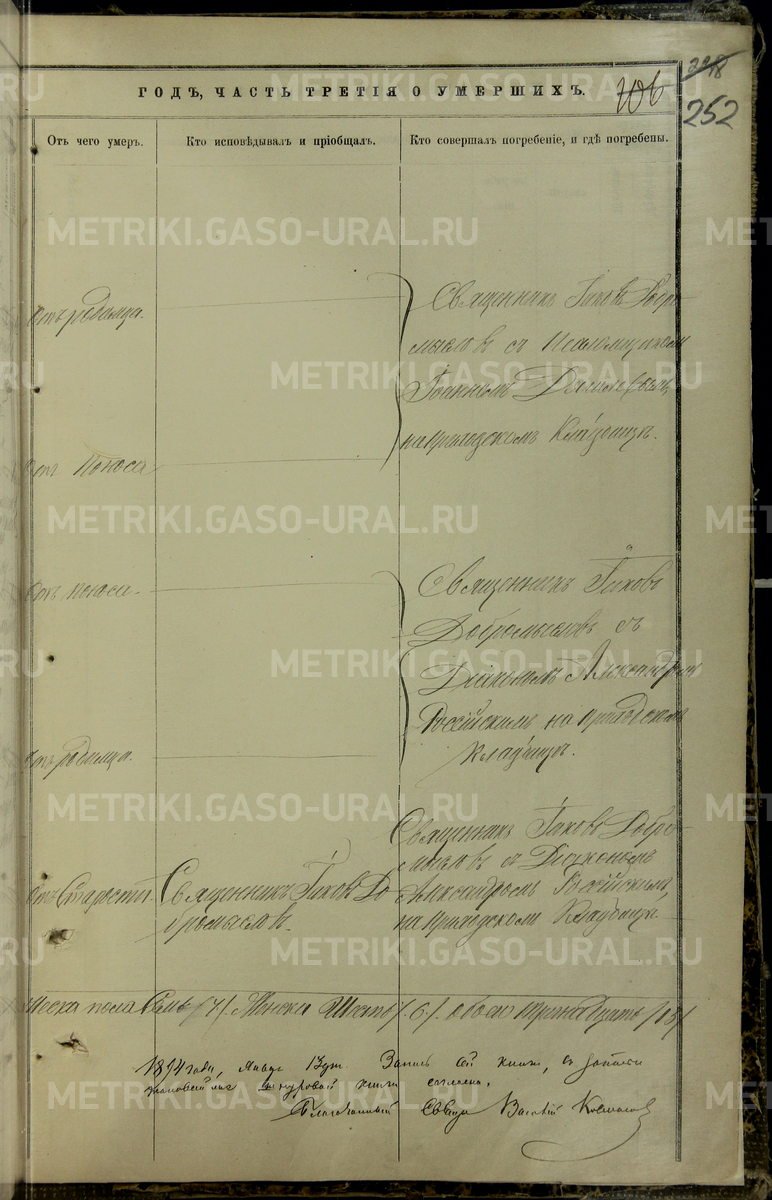 248
252
106
ГОДЪ, ЧАСТЬ ТРЕТІЯ О УМЕРШИХЪ.
Отъ чего умеръ.
Кто исповѣдывалъ и пріобщалъ.
Кто совершалъ погребеніе, и гдѣ погребены.
Отъ родимца.
Священникъ Іаковъ Добро-
мысловъ съ Псаломщикомъ
Іоанномъ
на приходскомъ кладбищѣ.
Отъ поноса
Отъ поноса.
Священникъ Іаковъ
Добромысловъ съ
Діакономъ Александромъ
Россійскимъ на приходскомъ
кладбищѣ.
Отъ родимца.
Отъ старости.
Священникъ Іаковъ До
бромысловъ.
Священникъ Іаковъ Добро-
мысловъ съ Діакономъ
Александромъ Россійскимъ,
на приходскомъ кладбищѣ
Мужеска пола семь /7/. Женска шесть /6/. обоего тринадцать /13/
1894 года, 13 дня. Запись сей книги, съ записью
шнуровой книги согласна.
Благочинный Свящ. Василій
METRIKI.GASO-URAL.RU